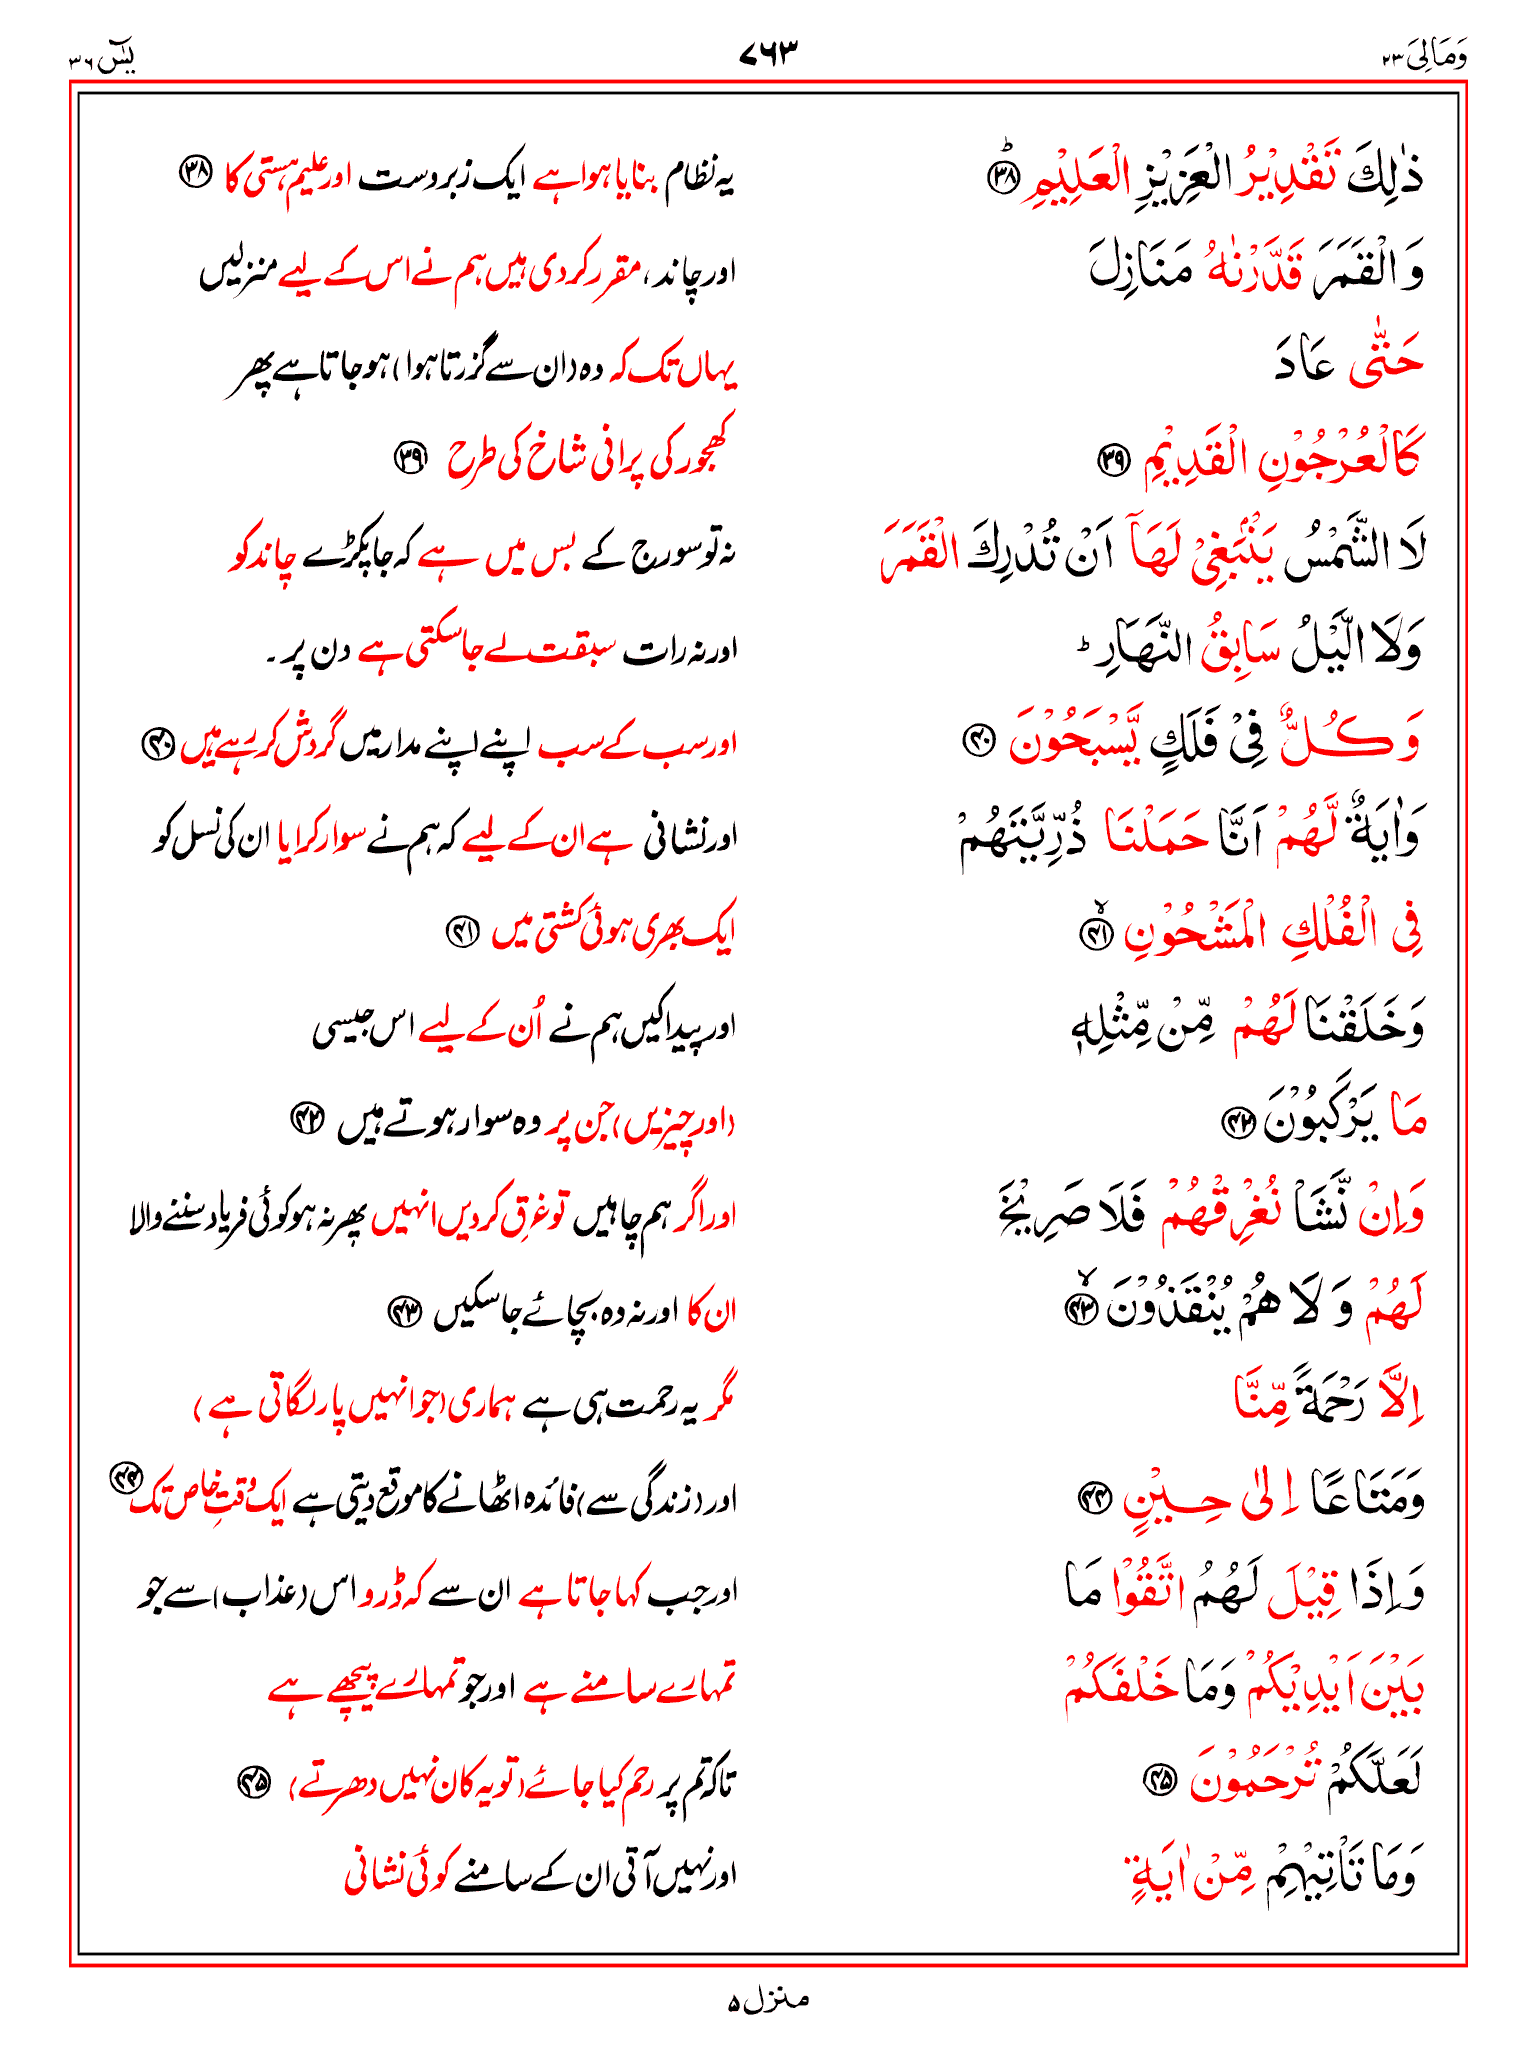 وَمَالِیَ ۲۳ ۷۶۳ یٰسٓ ۳۶
ذٰلِكَ تَقْدِیْرُ الْعَزِیْزِ الْعَلِیْمِ ؕ﴿۳۸﴾ یہ نظام بنایا ہوا ہے ایک زبردست اور علیم ہستی کا ﴿۳۸﴾
وَ الْقَمَرَ قَدَّرْنٰهُ مَنَازِلَ اور چاند، مقرر کردی ہیں ہم نے اس کے لیے منزلیں
حَتّٰی عَادَ یہاں تک کہ وہ (ان سے گزرتا ہوا) ہو جاتا ہے پھر
كَالْعُرْجُوْنِ الْقَدِیْمِ ﴿۳۹﴾ کھجور کی پرانی شاخ کی طرح ﴿۳۹﴾
لَا الشَّمْسُ یَنْۢبَغِیْ لَهَاۤ اَنْ تُدْرِكَ الْقَمَرَ نہ تو سورج کے بس میں ہے کہ جا پکڑے چاند کو
وَلَا الَّیْلُ سَابِقُ النَّهَارِ ؕ اور نہ رات سبقت لے جاسکتی ہے دن پر۔
وَ كُلٌّ فِیْ فَلَكٍ یَّسْبَحُوْنَ ﴿۴۰﴾ اور سب کے سب اپنے اپنے مدار میں گردش کر رہے ہیں ﴿۴۰﴾
وَاٰیَةٌ لَّهُمْ اَنَّا حَمَلْنَا ذُرِّیَّتَهُمْ اور نشانی ہے ان کے لیے کہ ہم نے سوار کرایا ان کی نسل کو
فِی الْفُلْكِ الْمَشْحُوْنِ ۙ﴿۴۱﴾ ایک بھری ہوئی کشتی میں ﴿۴۱﴾
وَخَلَقْنَا لَهُمْ مِّنْ مِّثْلِهٖ اور پیدا کیں ہم نے اُن کے لیے اس جیسی
مَا یَرْكَبُوْنَ ﴿۴۲﴾ (اور چیزیں) جن پر وہ سوار ہوتے ہیں ﴿۴۲﴾
وَاِنْ نَّشَاْ نُغْرِقْهُمْ فَلَا صَرِیْخَ اور اگر ہم چاہیں تو غرق کردیں انہیں پھر نہ ہو کوئی فریاد سننے والا
لَهُمْ وَ لَا هُمْ یُنْقَذُوْنَ ۙ﴿۴۳﴾ ان کا اور نہ وہ بچائے جاسکیں ﴿۴۳﴾
اِلَّا رَحْمَةً مِّنَّا مگر یہ رحمت ہی ہے ہماری (جو انہیں پار لگاتی ہے)
وَمَتَاعًا اِلٰی حِیْنٍ ﴿۴۴﴾ اور (زندگی سے) فائدہ اٹھانے کا موقع دیتی ہے ایک وقتِ خاص تک ﴿۴۴﴾
وَاِذَا قِیْلَ لَهُمُ اتَّقُوْا مَا اور جب کہا جاتا ہے ان سے کہ ڈرو اس (عذاب) سے جو
بَیْنَ اَیْدِیْكُمْ وَمَا خَلْفَكُمْ تمہارے سامنے ہے اور جو تمہارے پیچھے ہے
لَعَلَّكُمْ تُرْحَمُوْنَ ﴿۴۵﴾ تاکہ تم پر رحم کیا جائے (تو یہ کان نہیں دھرتے) ﴿۴۵﴾
وَمَا تَاْتِیْهِمْ مِّنْ اٰیَةٍ اور نہیں آتی ان کے سامنے کوئی نشانی
منزل ۵